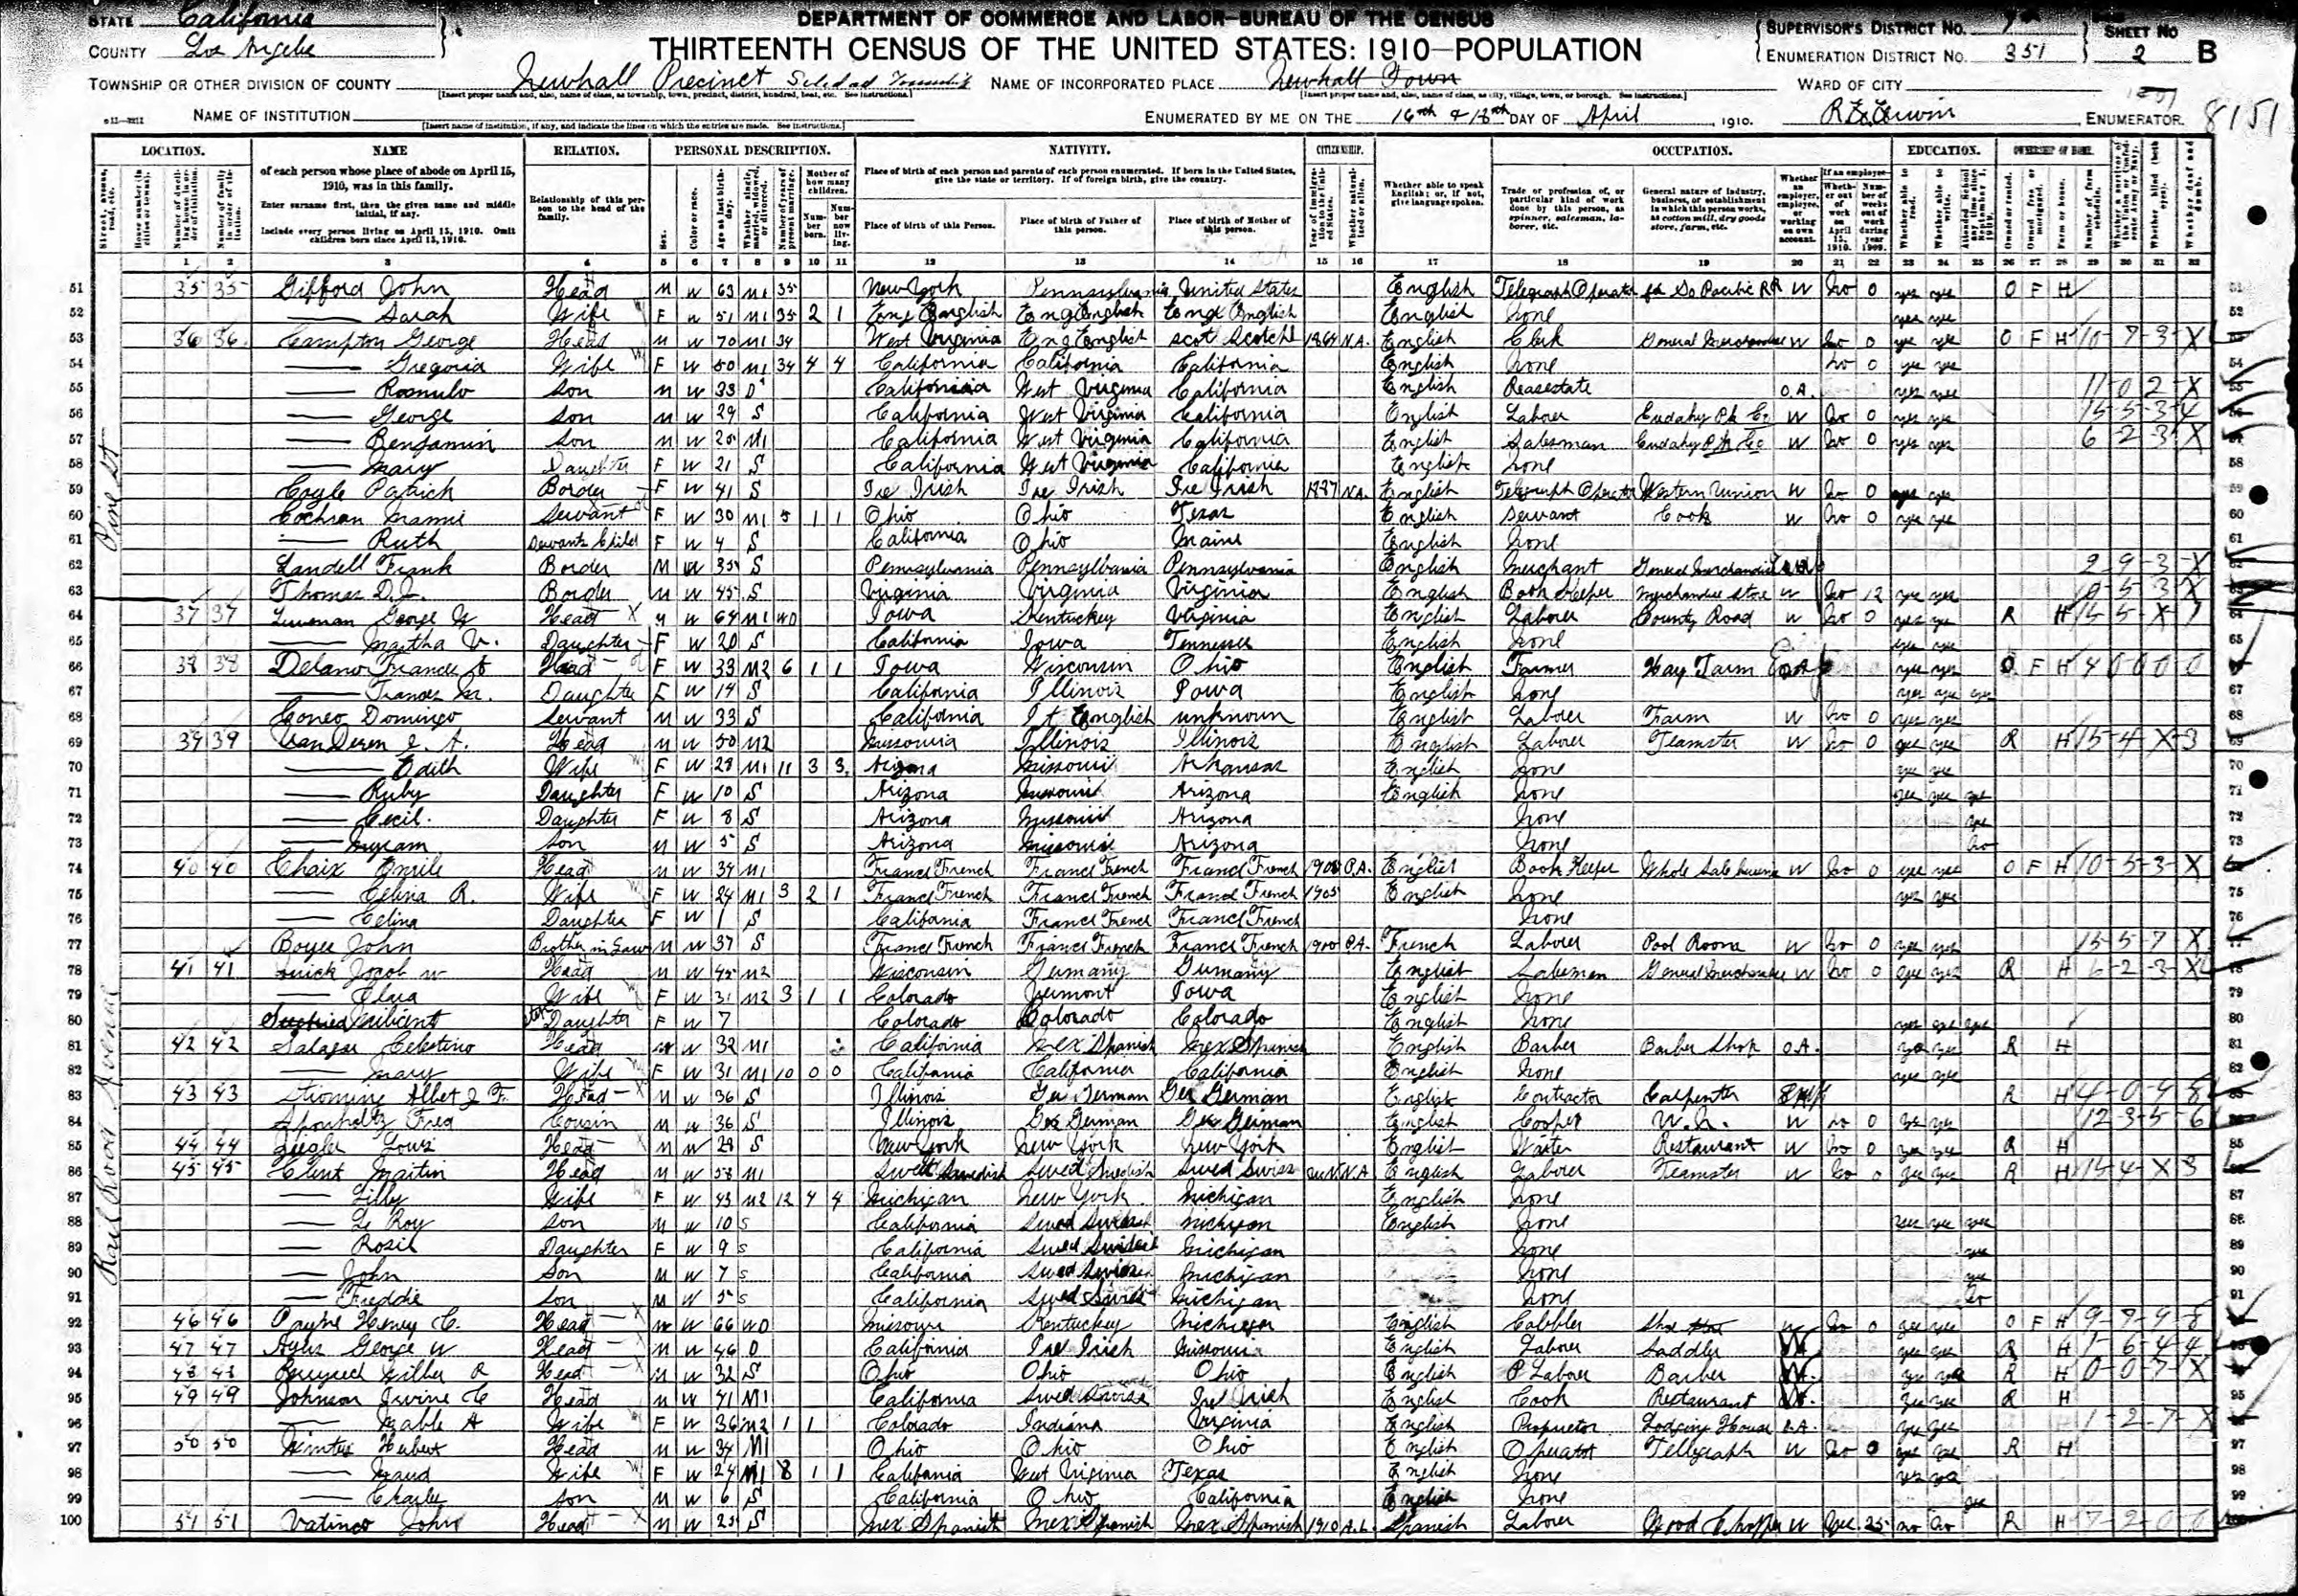 STATE California
COUNTY Los Angeles
DEPARTMENT OF COMMERCE AND LABOR-BUREAU OF THE CENSUS
THIRTEENTH CENSUS OF THE UNITED STATES: 1910-POPULATION
SUPERVISOR'S DISTRICT NO. SHEET NO
ENUMERATION DISTRICT NO. 351 2 B
TOWNSHIP OR OTHER DIVISION OF COUNTY Newhall Precinct Soledad Township NAME OF INCORPORATED PLACE Newhall Town WARD OF CITY
NAME OF INSTITUTION ENUMERATED BY ME ON THE 16th & 18th DAY OF April, 1910. ENUMERATOR. 8151
LOCATION. NAME RELATION. PERSONAL DESCRIPTION. NATIVITY. CITIZENSHIP. OCCUPATION. EDUCATION. OWNERSHIP OF HOME.
of each person whose place of abode on April 15, 1910, was in this family.
Enter surname first, then the given name and middle initial, if any.
Include every person living on April 15, 1910. Omit children born since April 15, 1910.
Relationship of this person to the head of the family.
Place of birth of each person and parents of each person enumerated. If born in the United States, give the state or territory. If of foreign birth, give the country.
Place of birth of this Person. Place of birth of Father of this person. Place of birth of Mother of this person.
Whether able to speak English; or, if not, give language spoken.
1 2 3 4 5 6 7 8 9 10 11 12 13 14 15 16 17 18 19 20 21 22 23 24 25 26 27 28 29 30 31 32
51 35 35 Gifford John Head M W 63 M1 35 New York Pennsylvania United States English Telegraph Operator So Pacific RR W No 0 yes yes O F H
52 Sarah Wife F W 51 M1 35 2 1 Eng English Eng English Eng English English None yes yes
53 36 36 Campton George Head M W 70 M1 34 West Virginia Eng English Scot Scotch 1864 NA English Clerk General Merchandise W No 0 yes yes O F H 10-7-3-X
54 Gregoria Wife F W 50 M1 34 4 4 California California California English None No 0 yes yes
55 Romulo Son M W 33 D California West Virginia California English Realestate O.A. yes yes 11-0 2-X
56 George Son M W 29 S California West Virginia California English Laborer Cudahy Pk Co W No 0 yes yes 15-5-3-4
57 Benjamin Son M W M1 California West Virginia California English Salesman Cudahy Pk Co W No 0 yes yes 6-2-3-X
58 Mary Daughter F W 21 S California West Virginia California English None
59 Coyle Patrick Border F W 41 S Ire Irish Ire Irish Ire Irish 1887 NA English Telegraph Operator Western Union W No 0 yes yes
60 Cochran Mamie Servant F W 30 M1 5 1 1 Ohio Ohio Texas English Servant Cook W No 0 yes yes
61 Ruth Servants Child F W 4 S California Ohio Maine English None
62 Landell Frank Border M W 35 S Pennsylvania Pennsylvania Pennsylvania English Merchant General Merchandise 2-9-3-X
63 Thomas D. Border M W 45 S Virginia Virginia Virginia English Book Keeper Merchandise Store W No 12 yes yes 0-5-3-X
64 37 37 George Head M W 64 M1 40 Iowa Kentucky Virginia English Laborer County Road W No 0 yes yes R H 15-5-X-7
65 Martha V. Daughter F W 20 S California Iowa Tennessee English None yes yes
66 38 38 Delano Frances Head F W 33 M2 6 1 1 Iowa Wisconsin Ohio English Farmer Hay Farm yes yes O F H 4 0 0 0 0
67 Frances M. Daughter F W 14 S California Illinois Iowa English None yes yes yes
68 Coneo Domingo Servant M W 33 S California It English unknown English Laborer Farm W No 0 yes yes
69 39 39 Van Deren J. A. Head M W 50 M2 Missouria Illinois Illinois English Laborer Teamster W No 0 yes yes R H 15-4-X-3
70 Edith Wife F W 28 M1 11 3 3 Arizona Missouri Arkansas English None yes yes
71 Ruby Daughter F W 10 S Arizona Missouri Arizona English None yes yes yes
72 Cecil Daughter F W 8 S Arizona Missouri Arizona None yes
73 Son M W 5 S Arizona Missouri Arizona None No
74 40 40 Chaix Emile Head M W 34 M1 France French France French France French P.A. English Book Keeper Whole Sale W No 0 yes yes O F H 10-5-3-X
75 Celina R. Wife F W 24 M1 3 2 1 France French France French France French 1905 English None yes yes
76 Celina Daughter F W 1 S California France French France French None
77 Boyer John Brother in Law M W 37 S France French France French France French 1900 P.A. French Laborer Pool Room W No 0 yes yes 15-5-7 X
78 41 41 Jacob W Head M W 45 M2 Wisconsin Germany Germany English Salesman General Merchandise W No 0 yes yes R H 6-2-3-X
79 Clara Wife F W 31 M2 3 1 1 Colorado Vermont Iowa English None
80 Milicent Step Daughter F W 7 Colorado Colorado Colorado English None yes yes yes
81 42 42 Salazar Celestino Head M W 32 M1 California Mex Spanish Mex Spanish English Barber Barber Shop O.A. yes yes R H
82 Mary Wife F W 31 M1 10 0 0 California California California English None yes yes
83 43 43 Albert J F. Head M W 36 S Illinois Ger German Ger German English Contractor Carpenter R H 4-0-4-8
84 Fred Cousin M W 36 S Illinois Ger German Ger German English Cooper W No 0 yes yes 12-3-5-6
85 44 44 Zeigler Louis Head M W 28 S New York New York New York English Waiter Restaurant W No 0 yes yes R H
86 45 45 Clint Martin Head M W 58 M1 Swed Swedish Swed Swedish Swed Swiss NA English Laborer Teamster W No 0 yes yes R H 15-4-X 3
87 Lilly Wife F W 43 M2 12 4 4 Michigan New York Michigan English None
88 Le Roy Son M W 10 S California Michigan English None yes yes yes
89 Rosie Daughter F W 9 S California Michigan None yes
90 John Son M W 7 S California Michigan None yes
91 Freddie Son M W 5 S California Michigan None No
92 46 46 Payne Henry C. Head M W 66 WD Missouri Kentucky Michigan English Cobbler Shoe W No 0 yes yes O F H 9-7-4-8
93 47 47 George W Head M W 46 D California Ire Irish Missouria English Laborer Saddler yes yes R H 1-6-4-4
94 48 48 Wilber R Head M W 32 S Ohio Ohio Ohio English Laborer Barber R H 0-0-7-X
95 49 49 Johnson Irvine C Head M W 41 M1 California Ire Irish English Cook Restaurant yes yes R H
96 Mable A Wife F W 36 M2 1 1 Colorado Indiana Virginia English Proprietor Lodging House O.A. yes yes 1-2-7-X
97 50 50 Hubert Head M W 34 M1 Ohio Ohio Ohio English Operator Tellegraph W No 0 yes yes R H
98 Maud Wife F W 24 M1 8 1 1 California West Virginia Texas English None yes yes
99 Charles Son M W 6 S California Ohio California English None yes
100 51 51 Vatinco John Head M W 25 S Mex Spanish Mex Spanish Mex Spanish 1910 A.L. Spanish Laborer Wood Chopper W Yes 25 No No R H 7-2-0-0
Pine St
Rail Road Avenue